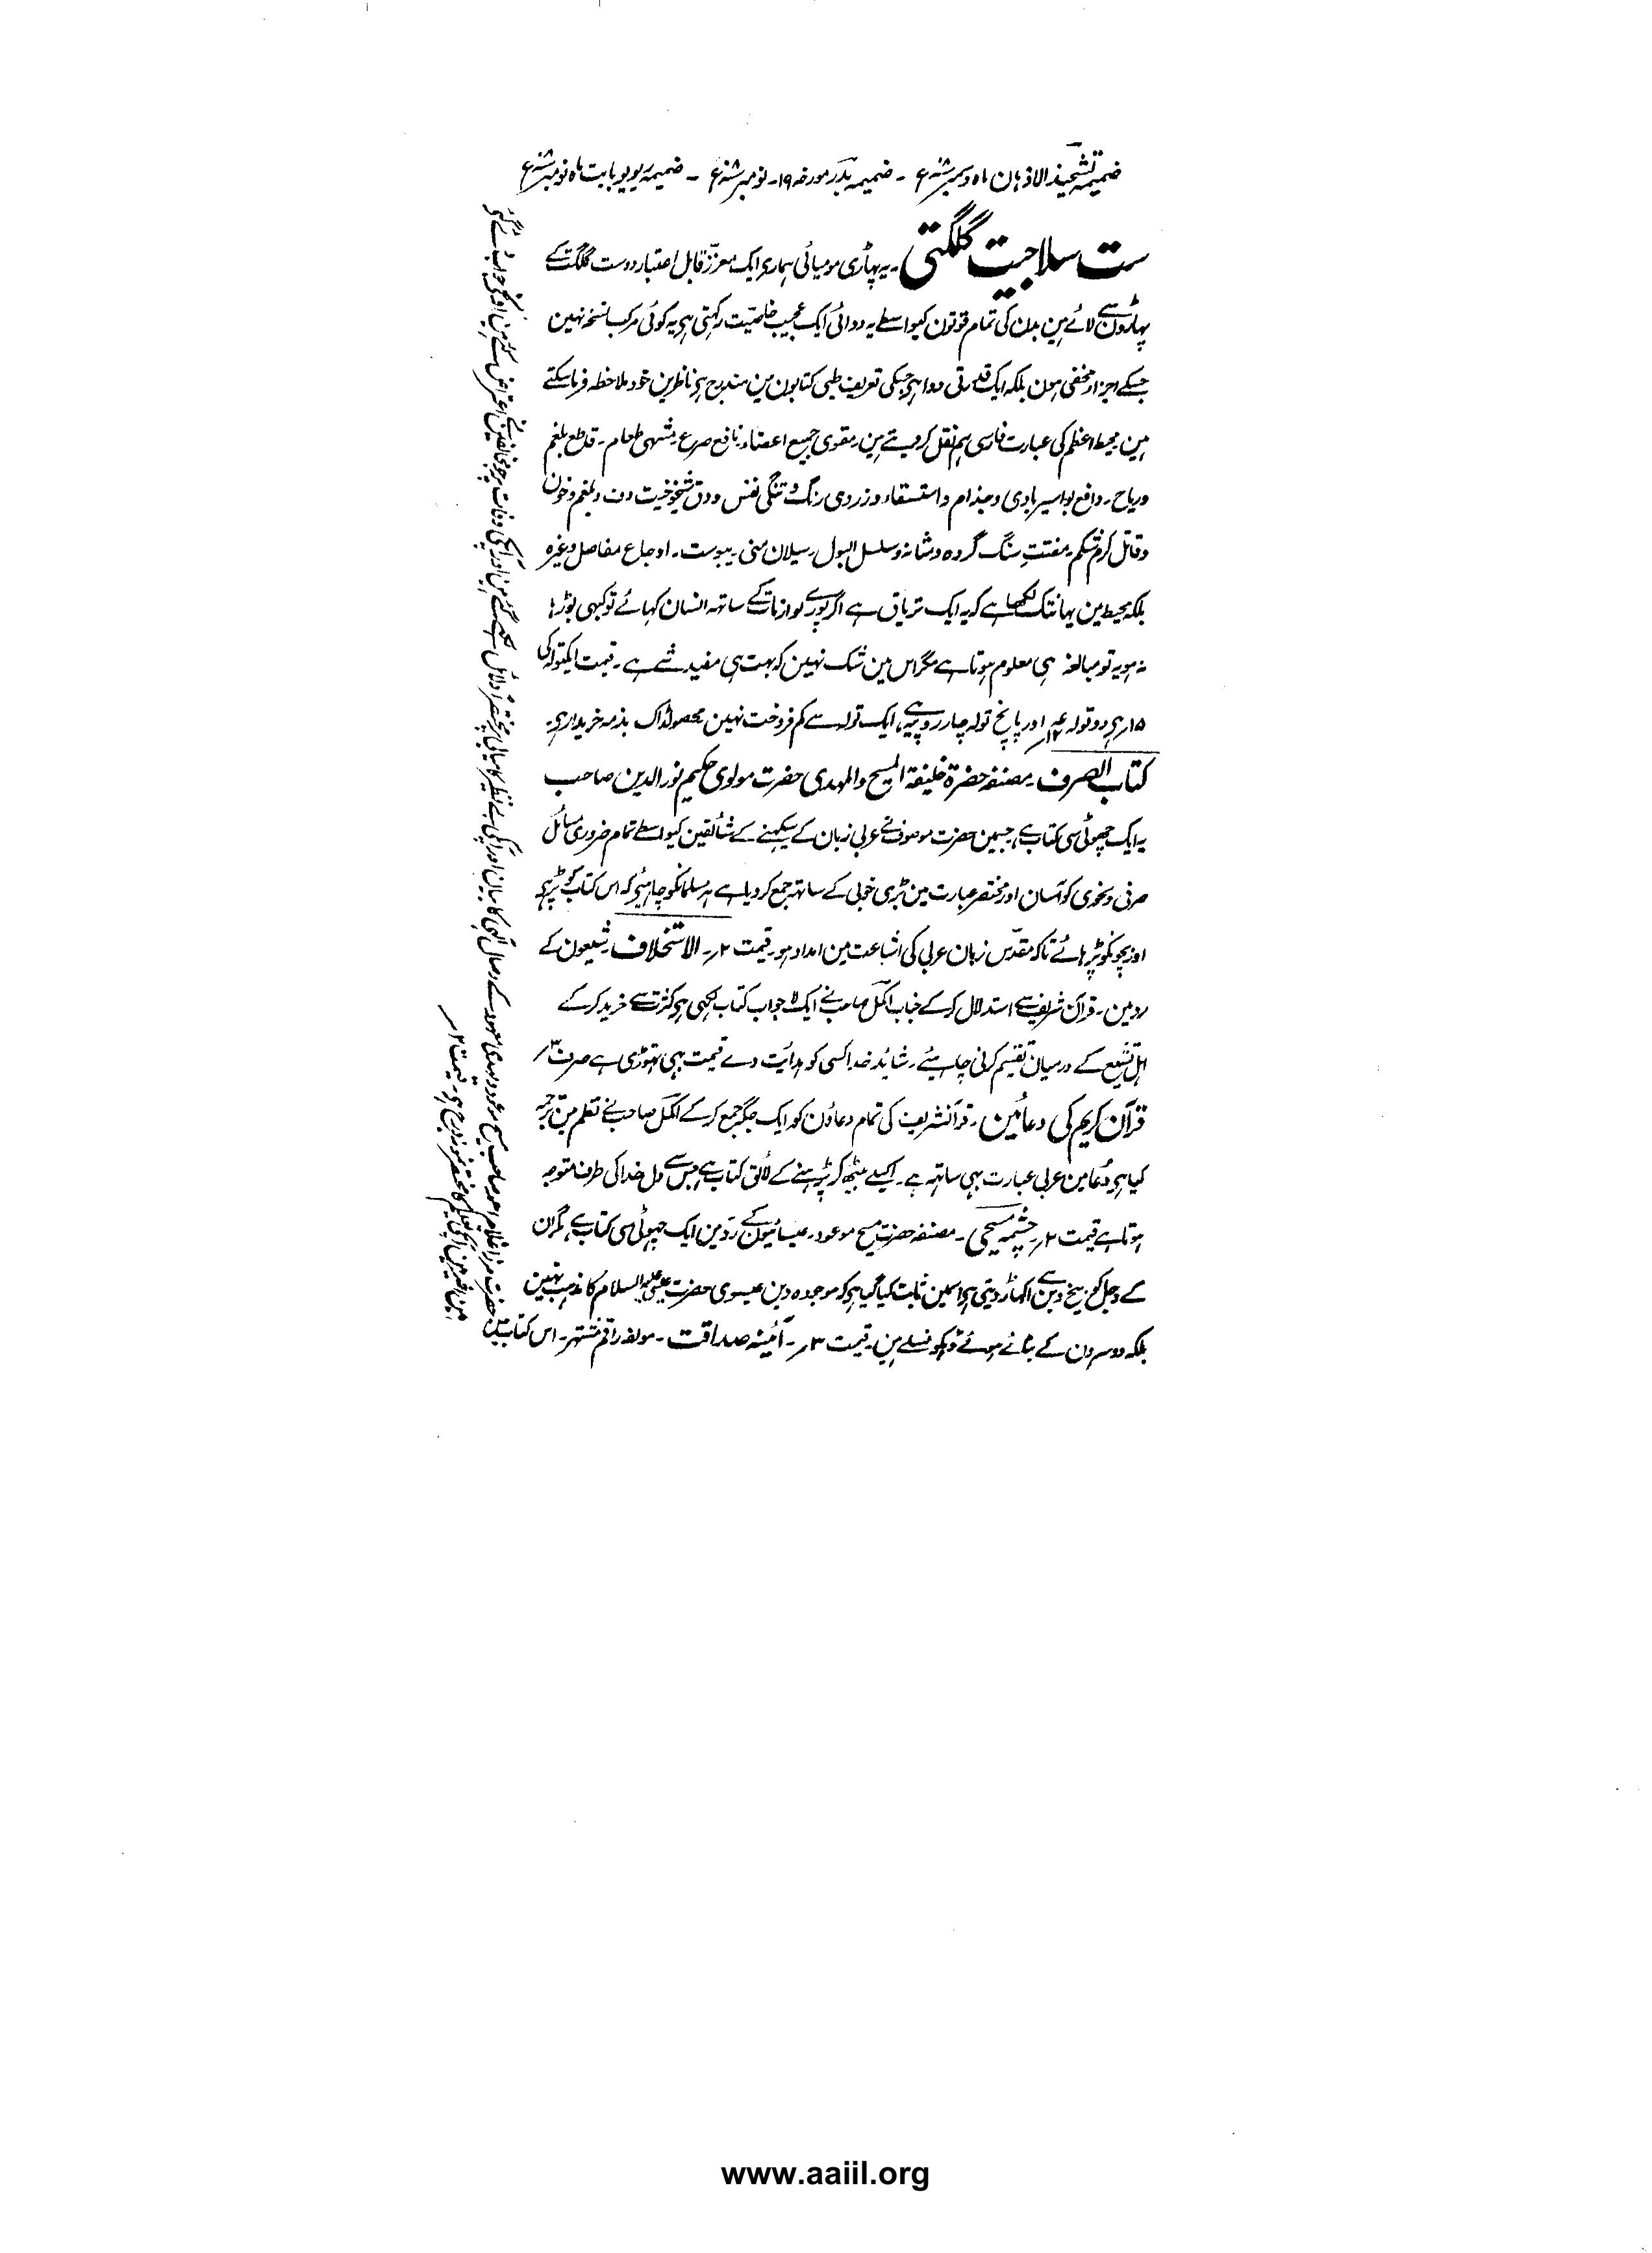 ضمیمہ تشحیذ الاذہان ماہ دسمبر ۱۹۰۸ء - ضمیمہ بدر مورخہ ۱۹- نومبر ۱۹۰۸ء - ضمیمہ ریویو بابت ماہ نومبر ۱۹۰۸ء
ست سلاجیت گلگتی - یہ پہاڑی مومیائی ہماری ایک معزز قابل اعتبار دوست گلگت کے
پہاڑون سے لائے ہین بدن کی تمام قوتون کیواسطے یہ دوائی ایک عجیب خاصیت رکہتی ہی یہ کوئی مرکب نسخہ نہین
جسکے اجزاء مخفی ہون بلکہ ایک قدرتی دوا ہی جسکی تعریف طبی کتابون مین مندرج ہی ناظرین خود ملاحظہ فرما سکتے
ہین محیط اعظم کی عبارت فارسی ہم نقل کر دیتے ہین - مقوی جمیع اعضاء نافع صرع - مشہی طعام - قاطع بلغم
و ریاح - دافع بواسیر بادی و جذام و استسقاء و زردی رنگ و تنگی نفس و دق و شیخوخیت و بلغم و خون
و قاتل کرم شکم - مفتت سنگ گردہ و مثانہ و سلسل البول - سیلان منی - یبوست - اوجاع مفاصل وغیرہ
بلکہ محیط مین یہانتک لکھا ہے کہ یہ ایک تریاق ہے اگر پورے لوازمات کے ساتہہ انسان کہائے تو کبہی بوڑہا
نہ ہو یہ تو مبالغہ ہی معلوم ہوتا ہے مگر اس مین شک نہین کہ بہت ہی مفید شے ہے - قیمت ایکتولہ کی
۱۵؍ ہی دو تولہ اور پانچ تولہ چار روپیہ ہے، ایک تولہ سے کم فروخت نہین محصولڈاک بذمہ خریدار ہی -
کتاب الصرف - مصنفہ حضرۃ خلیفۃ المسیح والمہدی حضرت مولوی حکیم نور الدین صاحب
یہ ایک چھوٹی سی کتاب ہے، جسمین حضرت موصوف نے عربی زبان کے سیکہنے کے شائقین کیواسطے تمام ضروری مسائل
صرفی و نحوی کو آسان اور مختصر عبارت مین بڑی خوبی کے ساتہہ جمع کر دیا ہے ہر مسلمانکو چاہئیے کہ اس کتاب کو پڑہے
اور بچونکو پڑہائے تاکہ مقدس زبان عربی کی اشاعت مین امداد ہو - قیمت ۲؍ - الاستخلاف - شیعون کے
رد مین - قرآن شریف سے استدلال کر کے جناب اکمل صاحب نے ایک لا جواب کتاب لکہی ہی کثرت سے خرید کر کے
اہل تشیع کے درمیان تقسیم کرنی چاہئیے - شائد خدا کسی کو ہدایت دے قیمت بہی تہوڑی ہے صرف ۳؍
قرآن کریم کی دعائین - قرآنشریف کی تمام دعاؤن کو ایک جگہ جمع کر کے اکمل صاحب نے نظم مین ترجمہ
کیا ہی دعا مین عربی عبارت بہی ساتہہ ہے - اکیلے بیٹھ کر پڑہنے کے لائق کتاب ہے جس سے دل خدا کی طرف متوجہ
ہوتا ہے قیمت ۲؍ - چشمہ مسیحی - مصنفہ حضرت مسیح موعود - عیسائیون کے رد مین ایک چہوٹی سی کتاب ہے، مگر ان
کے دجل کو بیخ و بن سے اکہاڑ دیتی ہی اسمین ثابت کیا گیا ہی کہ موجودہ دین عیسوی حضرت عیسی علیہ السلام کا مذہب نہین
بلکہ دوسرون کے بنائے ہوئے ڈہکوسلے ہین - قیمت ۳؍ - آئینہ صداقت - مولفہ راقم مشتہر - اس کتاب مین
حضرت مرزا غلام احمد صاحب مسیح موعود و مہدی معہود کے وصال الٰہی کا بیان اور آپکی بے نظیر کامیابی پر مختصراً دلائل لکہے گئے ہین اور آپکی وفات پر جو مخالفین نے اعتراض کئے ہین اونکے جواب دئے گئے
ہین اخیر مین آپکی تعلیم کا مختصر نمونہ درج ہی - قیمت ۲؍
www.aaiil.org